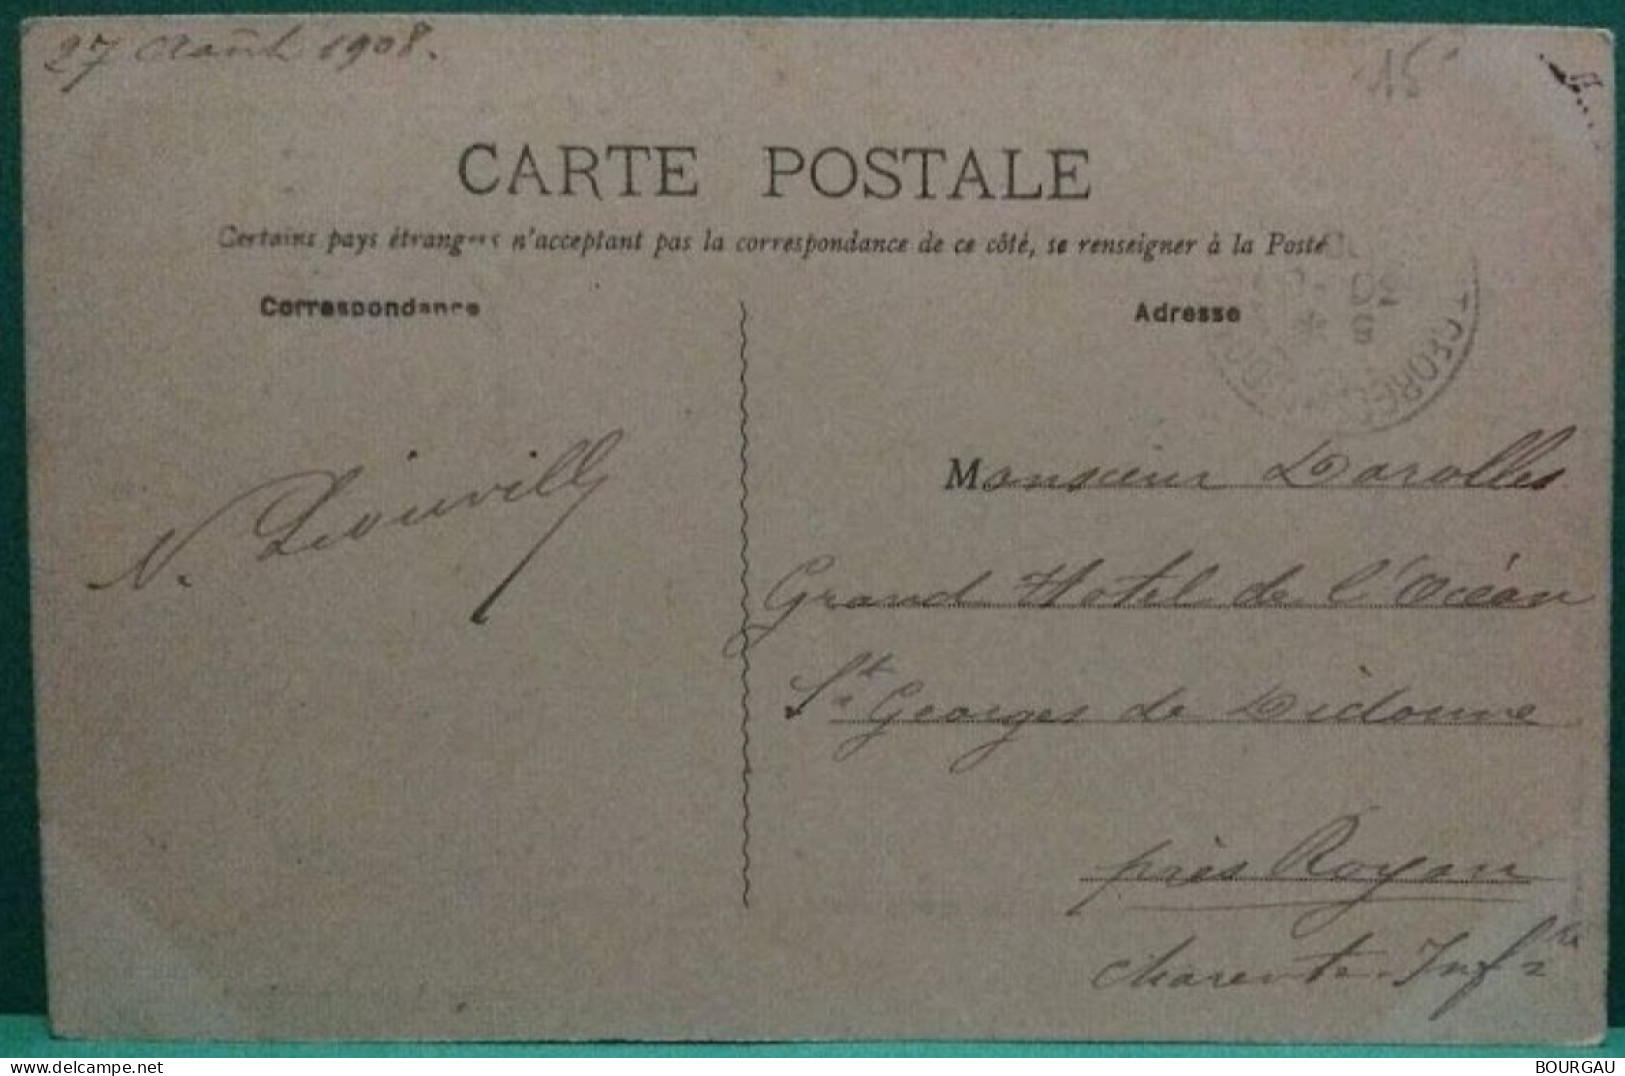 27 Août 1908.
15
CARTE POSTALE
Certains pays étrangers n'acceptant pas la correspondance de ce côté, se renseigner à la Poste
Correspondance
Adresse
Monsieur Darolles
Grand Hotel de l'Océan
St Georges de Didonne
près Royan
Charente-Infre
N.
BOURGAU
delcampe.net